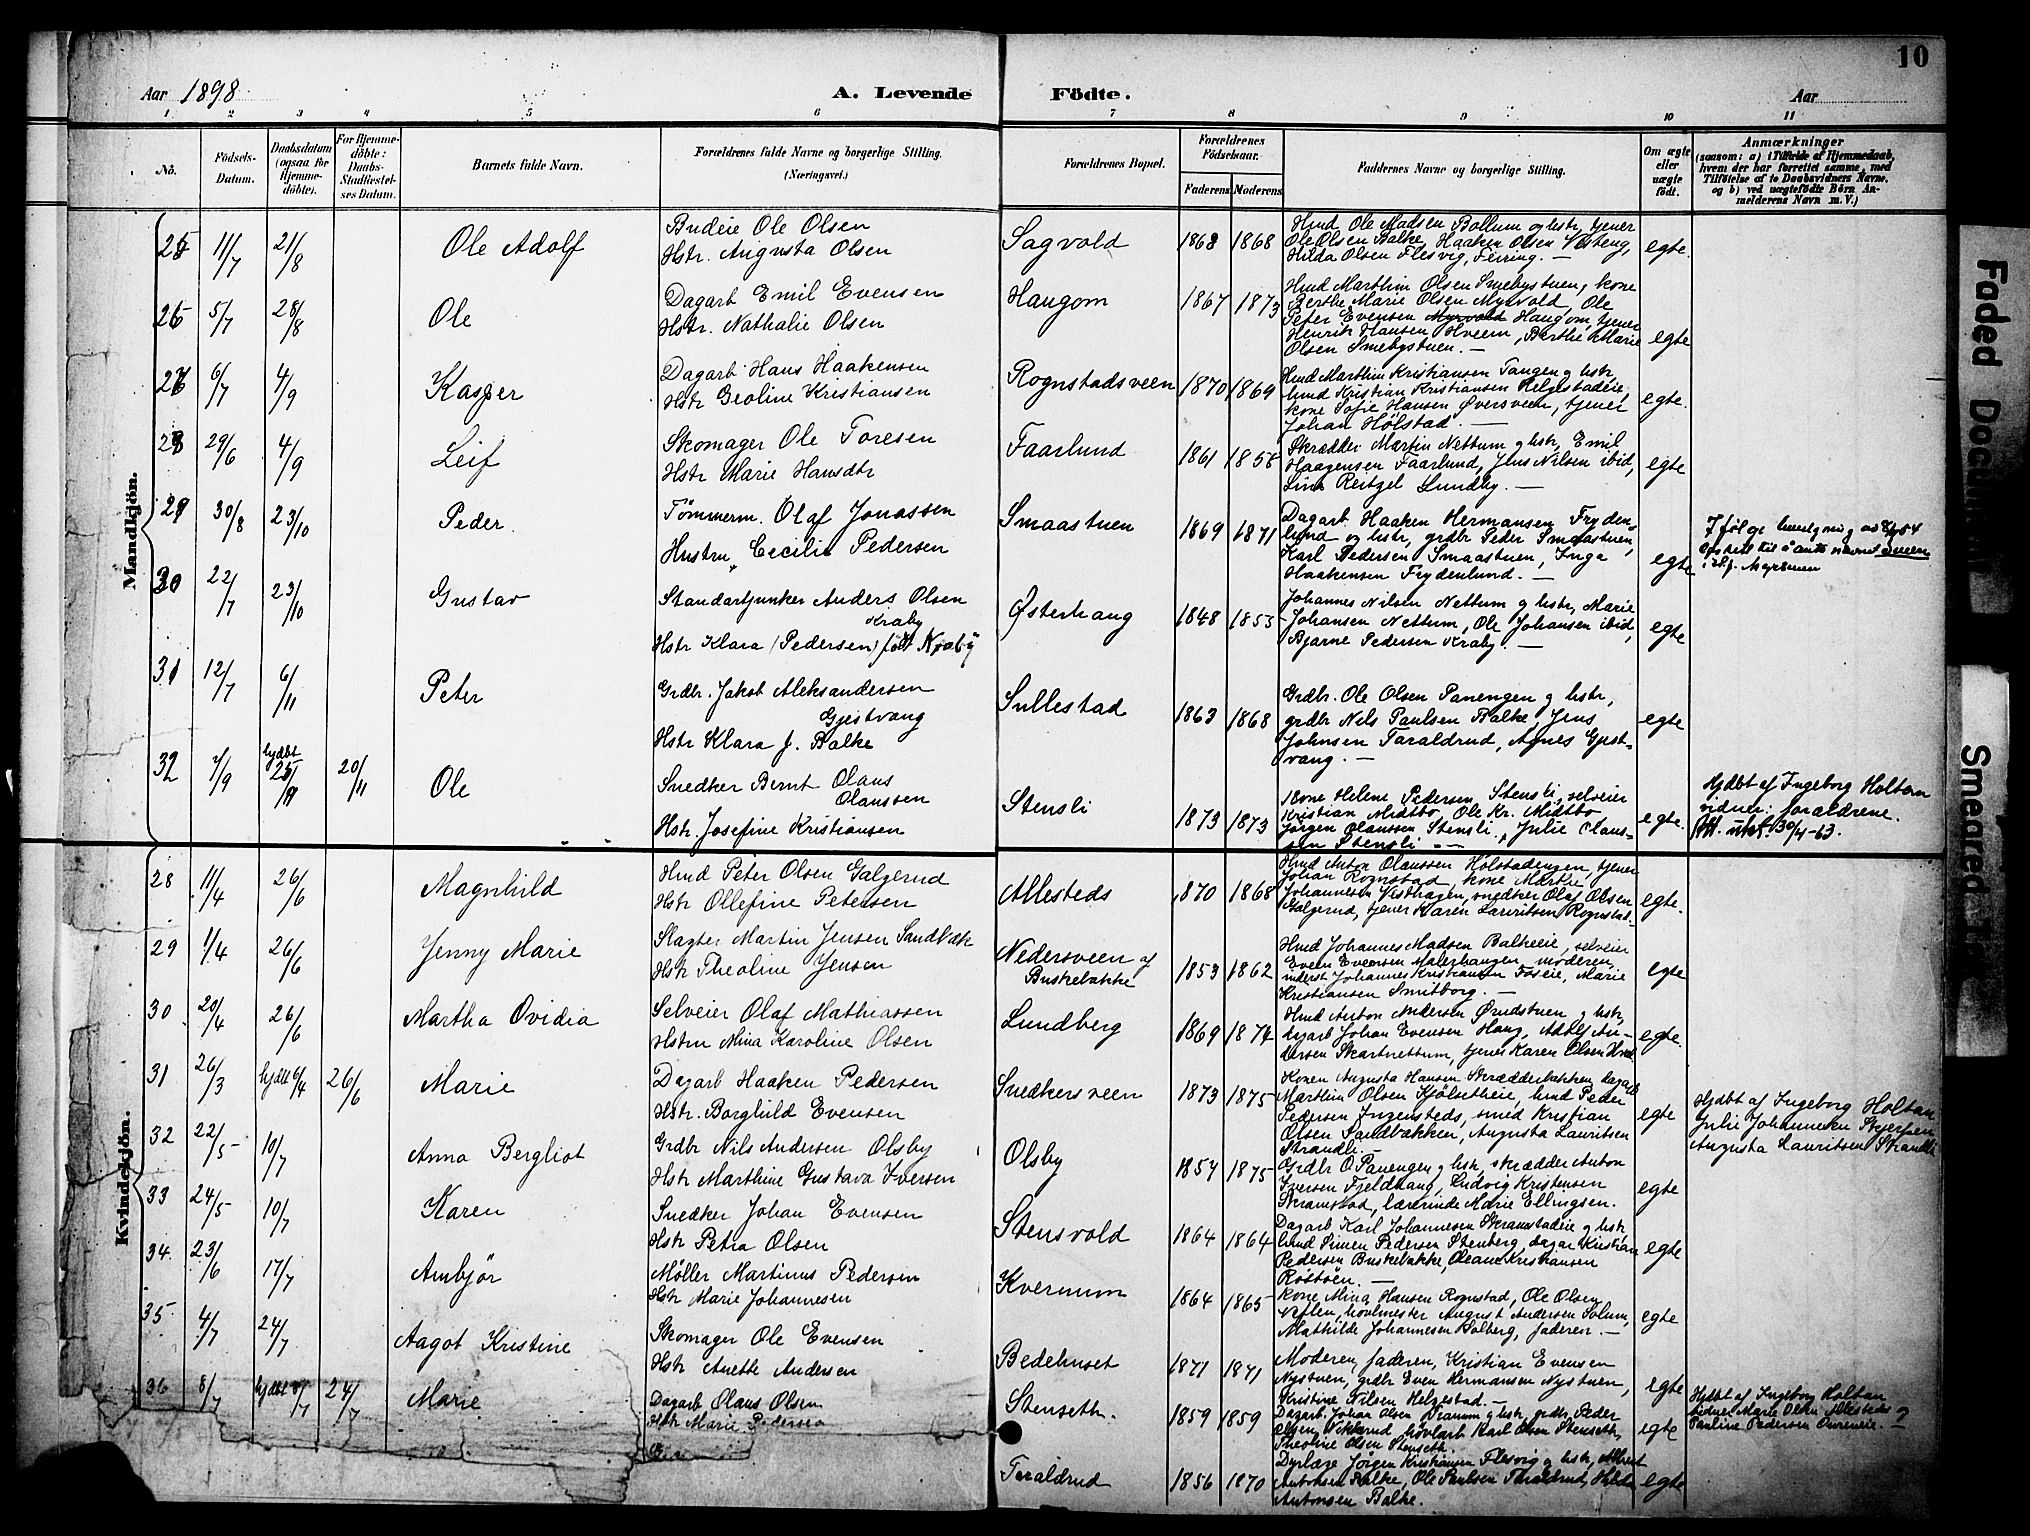 10
Aar 1898
A. Levende Födte.
Aar
1 2 3 4 5 6 7 8 9 10 11
No.
Födsels-Datum.
Daabsdatum (ogsaa for Hjemme-döbte).
For Hjemme-döbte: Daabs-Stadfæstel-ses Datum.
Barnets fulde Navn.
Forældrenes fulde Navne og borgerlige Stilling. (Næringsvei.)
Forældrenes Bopæl.
Forældrenes Födselsaar.
Faderens Moderens
Faddernes Navne og borgerlige Stilling.
Om ægte eller uægte födt.
Anmærkninger
(saasom: a) i Tilfælde af Hjemmedaab,
hvem der har forrettet samme, med
Tilföielse af to Daabsvidners Navne,
og b) ved uægtefödte Börn An-
melderens Navn m. V.)
Mandkjön.
25 11/7 21/8 Ole Adolf
Budeie Ole Olsen
Hstr. Augusta Olsen
Sagvold 1868 1868
Hmd Ole Madsen Bollum og hstr, tjener
Ole Olsen Balke, Haaken Olsen Vesteng,
Hilda Olsen Flesvig, Ferring. —
egte.
26 5/7 28/8 Ole
Dagarb Emil Evensen
Hstr. Nathalie Olsen
Haugom 1867 1873
Hmd Marthin Olsen Smebystuen, kone
Berthe Marie Olsen Myrvold, Ole
Peter Evensen Myrvold Haugom, tjener
Henrik Hansen Hveem, Berthe Marie
Olsen Smebystuen. —
egte
27 6/7 4/9 Kasper
Dagarb Hans Haakensen
Hstr Geoline Kristiansen
Rognstadsveen 1870 1869
Hmd Marthin Kristiansen Tangen og hstr,
hmd Kristian Kristiansen Helgestadeie,
kone Sofie Hansen Øversveen, tjener
Johan Hølstad. —
egte.
28 29/6 4/9 Leif
Skomager Ole Toresen
Hstr Marie Hansdtr
Faarlund 1861
Skrædder Martin Nettum og hstr, Emil
Haagensen Faarlund, Jens Nilsen ibid,
Lina Reitzel Lundby. —
egte
29 30/8 23/10 Peder.
Tømmerm. Olaf Jonassen
Hustru Cecilie Pedersen
Smaastuen 1869 1871
Dagarb. Haaken Hermansen Fryden-
lund og hstr, grdbr Peder Smaastuen,
Karl Pedersen Smaastuen, Inga
Haakensen Frydenlund. —
egte
30 22/7 23/10 Gustav
Standartjunker Anders Olsen
Kraby
Hstr Klara (Pedersen) født Kraby
Østerhaug 1848 1853
Johannes Nilsen Nettum og hstr, Marie
Johansen Nettum, Ole Johansen ibid,
Bjarne Pedersen Kraby. —
egte
31 12/7 6/11 Peter
Grdbr. Jakob Aleksandersen
Gjestvang
Hstr Klara J. Balke
Sullestad 1863 1868
Grdbr. Ole Olsen Panengen og hstr,
grdbr Nils Paulsen Balke, Jens
Johnsen Taraldrud, Agnes Gjest-
vang. —
egte
32 7/9 hjdbt 20/11 Ole
Snedker Bernt Olaus
Olaussen
Hstr. Josefine Kristiansen
Stensli 1873 1873
Kone Helene Pedersen Stensli, selveier
Kristian Midtbø, Ole Kr. Midtbø
Jørgen Olaussen Stensli, Julie Olaus-
sen Stensli —
egte.
Hjdbt af Ingeborg Holtan
vidner: forældrene.
Att. utst. 30/4-63.
Kvindekjön.
28 11/4 26/6 Magnhild
Hmd Peter Olsen Galgerud
Hstr Ollefine Petersen
Allesteds 1870 1868
Hmd Anton Olaussen Hølstadengen, tjener
Johan Rognstad, kone Marthe
Johannesen Vesthagen, snedker Olaf Olsen
Galgerud, tjener Karen Lauritsen Rognstad.
egte.
29 1/4 26/6 Jenny Marie
Slagter Martin Jensen Sandbæk
Hstr Theoline Jensen
Nedersveen af
Buskebakke 1853 1862
Hmd Johannes Madsen Balkeeie, selveier
Even Evensen Malerhaugen, moderen,
inderst Johannes Kristiansen Foseie, Marie
Kristiansen Smitborg. —
egte
30 20/4 26/6 Martha Ovidia
Selveier Olaf Mathiassen
Hstru Mina Karoline Olsen
Lundberg 1869 1874
Hmd Anton Andersen Ørudstuen og hstr,
dagarb Johan Evensen Haug, Adolf An-
dersen Skartnettum, tjener Karen Olsen
egte.
31 26/3 hjdbt 6/4 26/6 Marie
Dagarb Haaken Pedersen
Hstr. Borghild Evensen
Snedkersveen 1873 1875
Konen Augusta Hansen Skrædderbakken, dagarb
Marthin Olsen Kjølsetheie, hmd Peder
Pedersen Ingensteds, smed Kristian
Olsen Sandbakken, Augusta Lauritsen
Strandli. —
egte
Hjdbt af Ingeborg Holtan
Julie Johannesen Skjerpen
Augusta Lauritsen Strandli
32 22/5 10/7 Anna Bergliot
Grdbr Nils Andersen Olsby
Hstr Marthine Gustava Iversen
Olsby 1854 1875
Grdbr O. Panengen og hstr, skrædder Anton
Iversen Fjeldhaug, Ludvig Kristensen
Skramstad, lærerinde Marie Ellingsen.
egte
33 24/5 10/7 Karen
Snedker Johan Evensen
Hstr Petra Olsen
Stensvold 1864 1864
Dagarb Karl Johannesen Skramstadeie og hstr,
hmd Simen Pedersen Stenberg, dagar Kristian
Pedersen Buskebakke, Oleane Kristiansen
Røstøen. —
egte
34 23/6 17/7 Ambjør
Møller Martinus Pedersen
Hstr Marie Johannesen
Kvernum 1864 1865
Kone Mina Hansen Rognstad, Ole Olsen
Neflen, hovlmester August Andersen Solum,
Mathilde Johannesen Solberg, faderen. —
egte
35 4/7 24/7 Aagot Kristine
Skomager Ole Evensen
Hstr Anette Andersen
Bedehuset 1871 1871
Moderen, faderen, Kristian Evensen
Nystuen, grdbr Even Hermansen Nystuen,
Kristine Nilsen Helgestad. —
egte
36 8/7 hjdbt 8/7 24/7 Marie
Dagarb Olaus Olsen
Hstr Marie Pedersen
Stenseth. 1859 1859
Dagarb. Johan Olsen Bramum og hstr, grdbr. Peder
Olsen Vekkerud, hovlarb Karl Olsen Stenseth,
Theoline Olsen Stenseth.
egte
Hjdbt af Ingeborg Holtan
vidner Marie Olsen Allesteds og
Pauline Pedersen
Taraldrud 1856 1870
Dyrlæge Jørgen Kristiansen Flesvig og hstr, Albert
Antonsen Balke, Ole Paulsen Taraldrud, Hilda
Antonsen Balke.
egte
Faded Document
Smeared